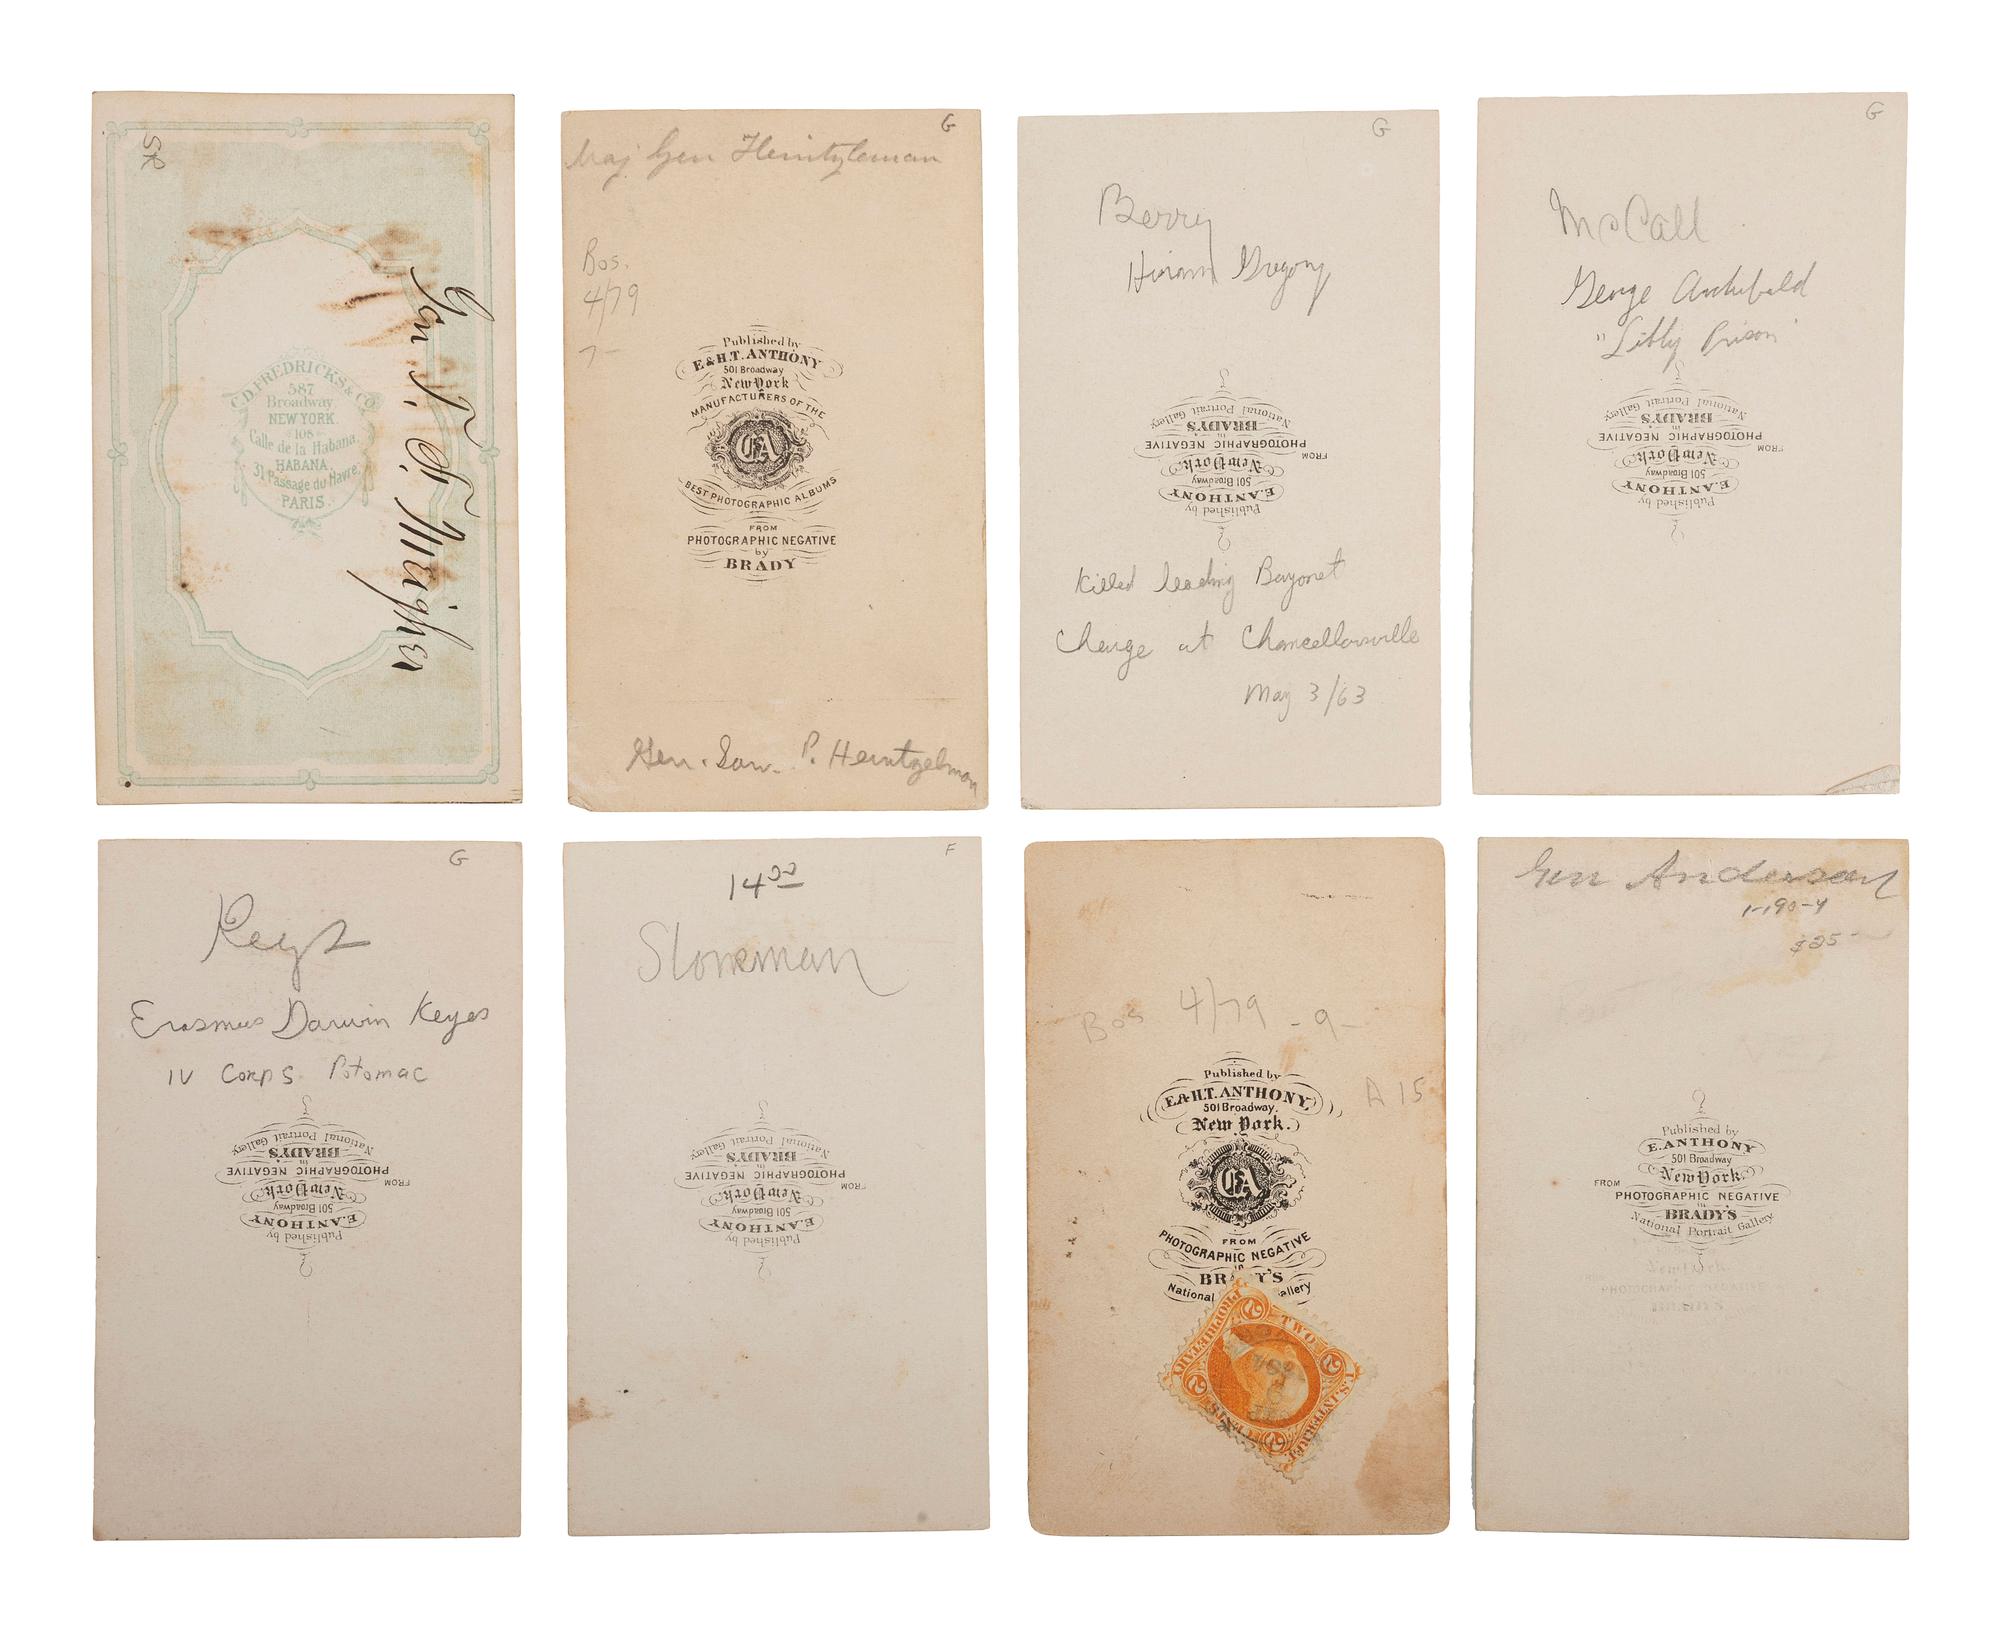 SR
C.D. FREDRICKS & CO.
587
Broadway.
NEW YORK.
108
Calle de la Habana.
HABANA.
31 Passage du Havre.
PARIS.
Gen T. F. Meigher
G
Maj Gen Heintzleman
Bos.
4/79
7-
Published by
E & H.T. ANTHONY
501 Broadway
New York
MANUFACTURERS OF THE
BEST PHOTOGRAPHIC ALBUMS
FROM
PHOTOGRAPHIC NEGATIVE
by
BRADY
Gen. Sam. P. Heintzelman
G
Berry
Hiram Gregory
Published by
E. ANTHONY
501 Broadway
New York.
FROM
PHOTOGRAPHIC NEGATIVE
in
BRADY'S
National Portrait Gallery
Killed leading Bayonet
Charge at Chancellorsville
May 3/63
G
McCall
George Archibald
"Libby Prison"
Published by
E. ANTHONY
501 Broadway
New York.
FROM
PHOTOGRAPHIC NEGATIVE
in
BRADY'S
National Portrait Gallery
G
Keys
Erasmus Darwin Keyes
IV Corps Potomac
Published by
E. ANTHONY
501 Broadway
New York.
FROM
PHOTOGRAPHIC NEGATIVE
in
BRADY'S
National Portrait Gallery
F
14 00
Stoneman
Published by
E. ANTHONY
501 Broadway
New York.
FROM
PHOTOGRAPHIC NEGATIVE
in
BRADY'S
National Portrait Gallery
Bos 4/79 -9-
A 15
Published by
E & H.T. ANTHONY,
501 Broadway.
New York.
FROM
PHOTOGRAPHIC NEGATIVE
in
BRADY'S
National Gallery
U.S. INTER. REV.
PROPRIETARY
TWO CENTS
2 2 2 2
Gen Anderson
1-190-4
$25-
Published by
E. ANTHONY
501 Broadway
New York.
FROM
PHOTOGRAPHIC NEGATIVE
in
BRADY'S
National Portrait Gallery